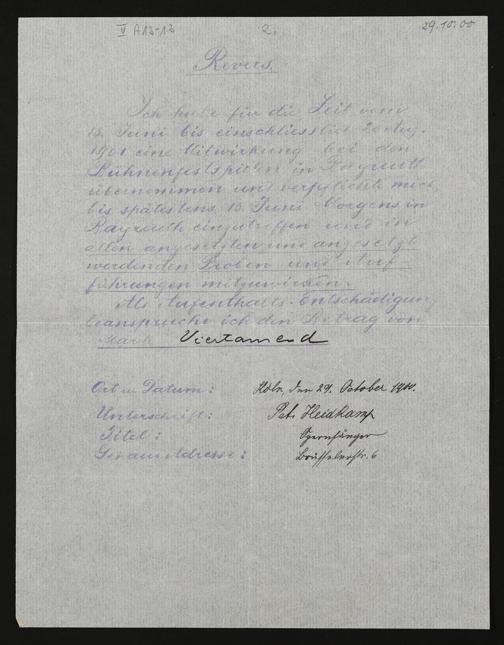 V A 13-13 2. 29.10.00
Revers.
Ich habe für die Zeit vom
13. Juni bis einschliesslich 20 Aug.
1901 eine Mitwirkung bei den
Bühnenfestspielen in Bayreuth
übernommen und verpflichte mich,
bis spätestens 13. Juni Morgens in
Bayreuth einzutreffen und in
allen angesetzten und angesetzt
werdenden Proben und Auf-
führungen mitzuwirken.
Als Aufenthalts-Entschädigung
beanspruche ich den Betrag von
Mark Viertausend
Ort u. Datum: Köln, den 29. October
Unterschrift: Pet. Heidkamp
Titel: Opernsänger
Genaue Adresse: Brüsselerstr. 6